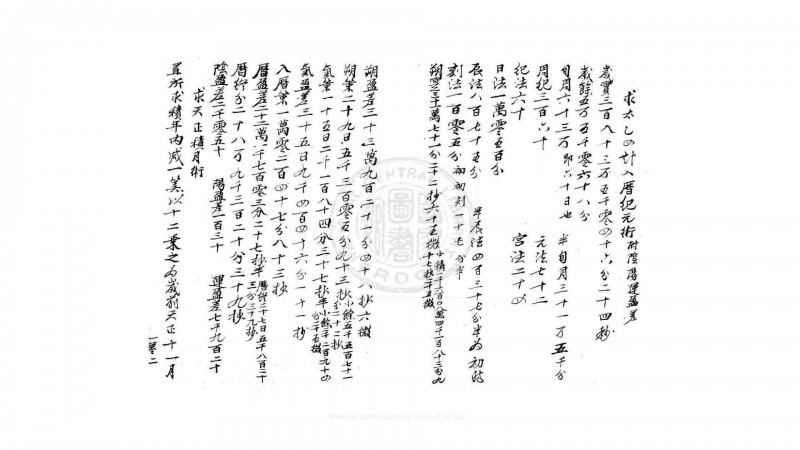 求太乙四計入曆紀元術附陰陽運盈差
歲實三百八十三万五千零四十六分二十四秒
歲餘五万五千零六十八分
旬周六十三万即六十日也 半旬周三十一万五千分
周紀三百六十 元法七十二
紀法六十 宮法二十四
日法一萬零五百分
辰法八百七十五分 半辰法四百三十七分半為初時
刻法一百零五分初初刻一十七分半
朔實三十一萬七十一分二十二秒六十五微
朔盈差三十三萬九百二十一分四十八秒六微
朔策二十九日五千三百零五分九十三秒小餘五千五百七十一分二十二秒
氣策一十五日二千一百八十四分三十七秒半小餘二千二百九十四分
氣盈差三十五日九千四百四十六分一十一秒
入曆策一萬零二百四十七分八十三秒
曆盈差二十二萬一千七百零三分二十七秒半曆終二十七日五千八百二十三分三十九秒
曆終分二十八万九千三百二十分三十九秒
陰盈差二千零五十 陽盈差一百三十 運盈差七千九百二十
求天正積月術
置所求積年內減一算以十二乗之為歲前天正十一月